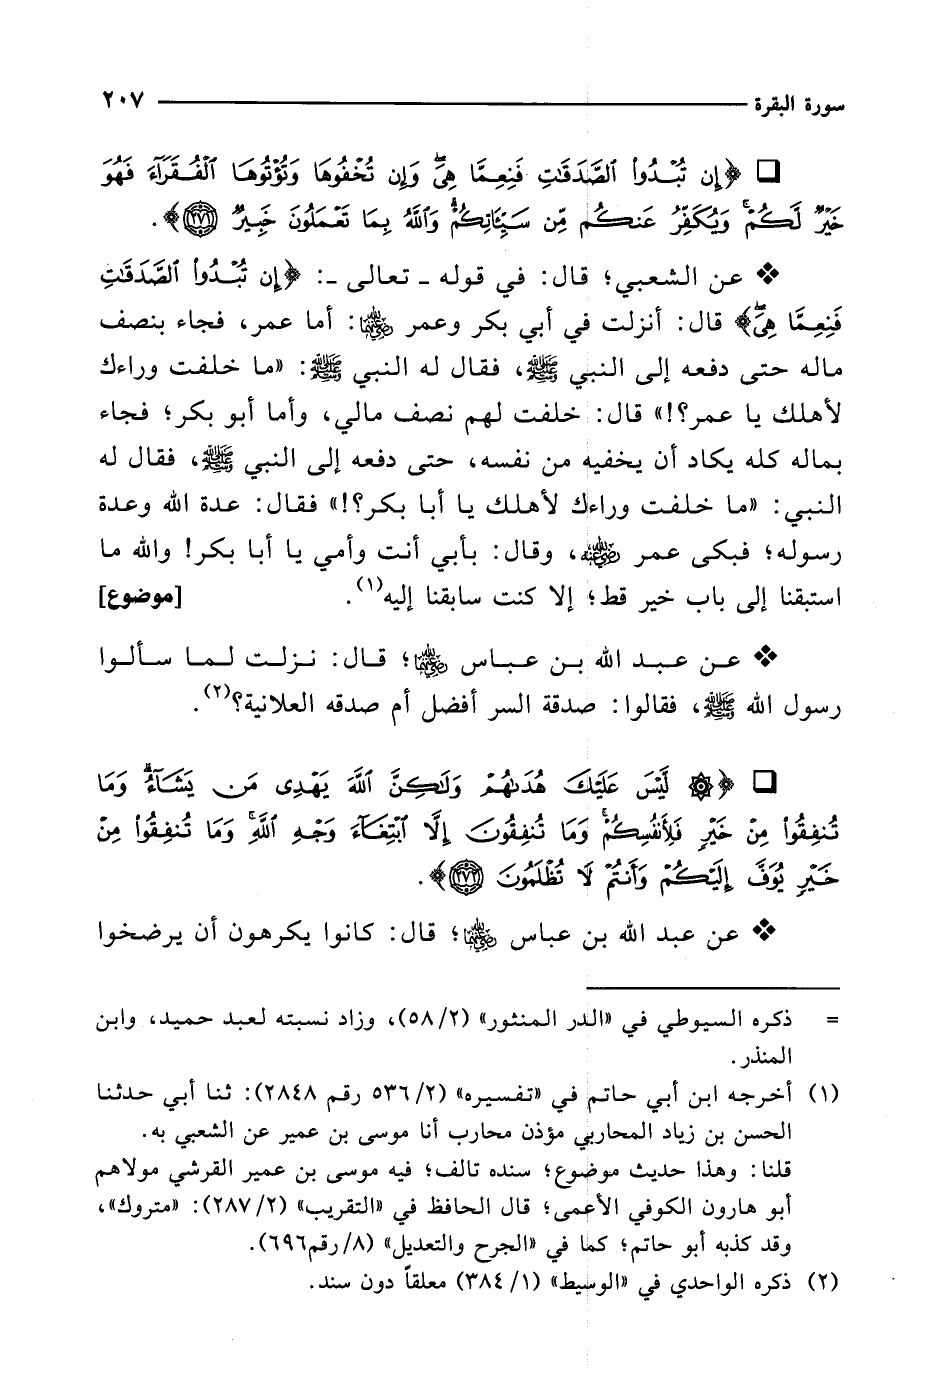 سورة البقرة ٢٠٧
❑ ﴿إِن تُبْدُوا۟ ٱلصَّدَقَٰتِ فَنِعِمَّا هِىَ ۖ وَإِن تُخْفُوهَا وَتُؤْتُوهَا ٱلْفُقَرَآءَ فَهُوَ
خَيْرٌ لَّكُمْ ۚ وَيُكَفِّرُ عَنكُم مِّن سَيِّـَٔاتِكُمْ ۗ وَٱللَّهُ بِمَا تَعْمَلُونَ خَبِيرٌ ٢٧١﴾.
❖ عن الشعبي؛ قال: في قوله ـ تعالى ـ: ﴿إِن تُبْدُوا۟ ٱلصَّدَقَٰتِ
فَنِعِمَّا هِىَ ۖ﴾ قال: أنزلت في أبي بكر وعمر رضي الله عنهما: أما عمر، فجاء بنصف
ماله حتى دفعه إلى النبي ﷺ، فقال له النبي ﷺ: «ما خلفت وراءك
لأهلك يا عمر؟!» قال: خلفت لهم نصف مالي، وأما أبو بكر؛ فجاء
بماله كله يكاد أن يخفيه من نفسه، حتى دفعه إلى النبي ﷺ، فقال له
النبي: «ما خلفت وراءك لأهلك يا أبا بكر؟!» فقال: عدة الله وعدة
رسوله؛ فبكى عمر رضي الله عنه، وقال: بأبي أنت وأمي يا أبا بكر! والله ما
استبقنا إلى باب خير قط؛ إلا كنت سابقنا إليه(١). [موضوع]
❖ عن عبد الله بن عباس رضي الله عنهما؛ قال: نزلت لما سألوا
رسول الله ﷺ، فقالوا: صدقة السر أفضل أم صدقه العلانية؟(٢).
❑ ﴿۞ لَّيْسَ عَلَيْكَ هُدَىٰهُمْ وَلَٰكِنَّ ٱللَّهَ يَهْدِى مَن يَشَآءُ ۗ وَمَا
تُنفِقُوا۟ مِنْ خَيْرٍ فَلِأَنفُسِكُمْ ۚ وَمَا تُنفِقُونَ إِلَّا ٱبْتِغَآءَ وَجْهِ ٱللَّهِ ۚ وَمَا تُنفِقُوا۟ مِنْ
خَيْرٍ يُوَفَّ إِلَيْكُمْ وَأَنتُمْ لَا تُظْلَمُونَ ٢٧٢﴾.
❖ عن عبد الله بن عباس رضي الله عنهما؛ قال: كانوا يكرهون أن يرضخوا
= ذكره السيوطي في «الدر المنثور» (٢/ ٥٨)، وزاد نسبته لعبد حميد، وابن
المنذر.
(١) أخرجه ابن أبي حاتم في «تفسيره» (٢/ ٥٣٦ رقم ٢٨٤٨): ثنا أبي حدثنا
الحسن بن زياد المحاربي مؤذن محارب أنا موسى بن عمير عن الشعبي به.
قلنا: وهذا حديث موضوع؛ سنده تالف؛ فيه موسى بن عمير القرشي مولاهم
أبو هارون الكوفي الأعمى؛ قال الحافظ في «التقريب» (٢/ ٢٨٧): «متروك»،
وقد كذبه أبو حاتم؛ كما في «الجرح والتعديل» (٨/ رقم٦٩٦).
(٢) ذكره الواحدي في «الوسيط» (١/ ٣٨٤) معلقاً دون سند.